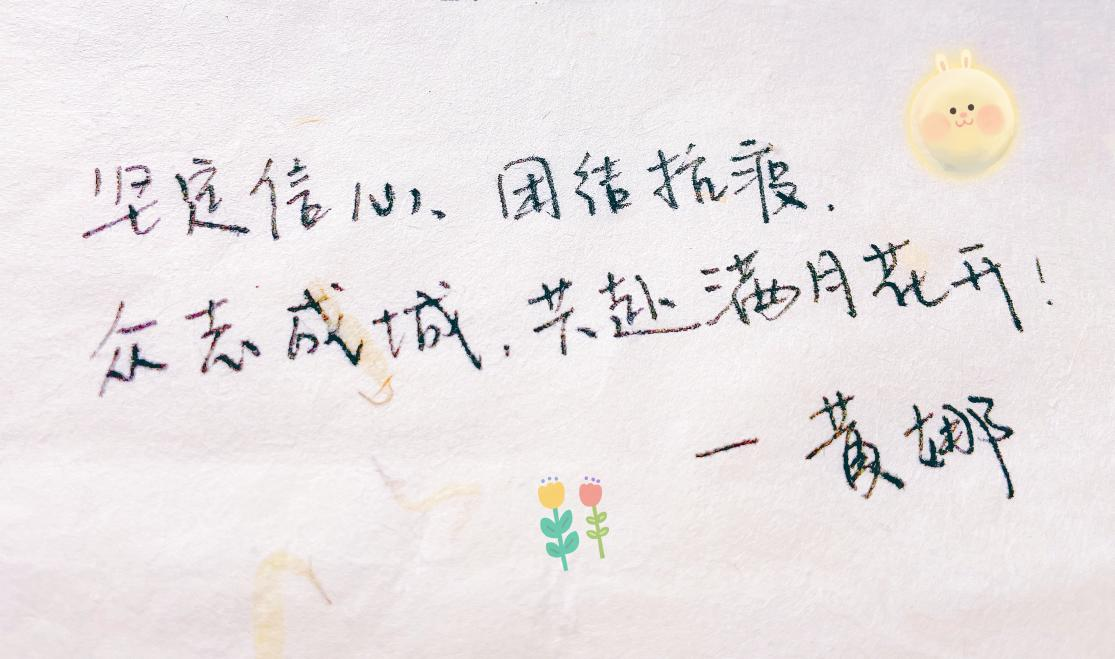 坚定信心、团结抗疫.
众志成城.共赴满月花开!
—黄娜